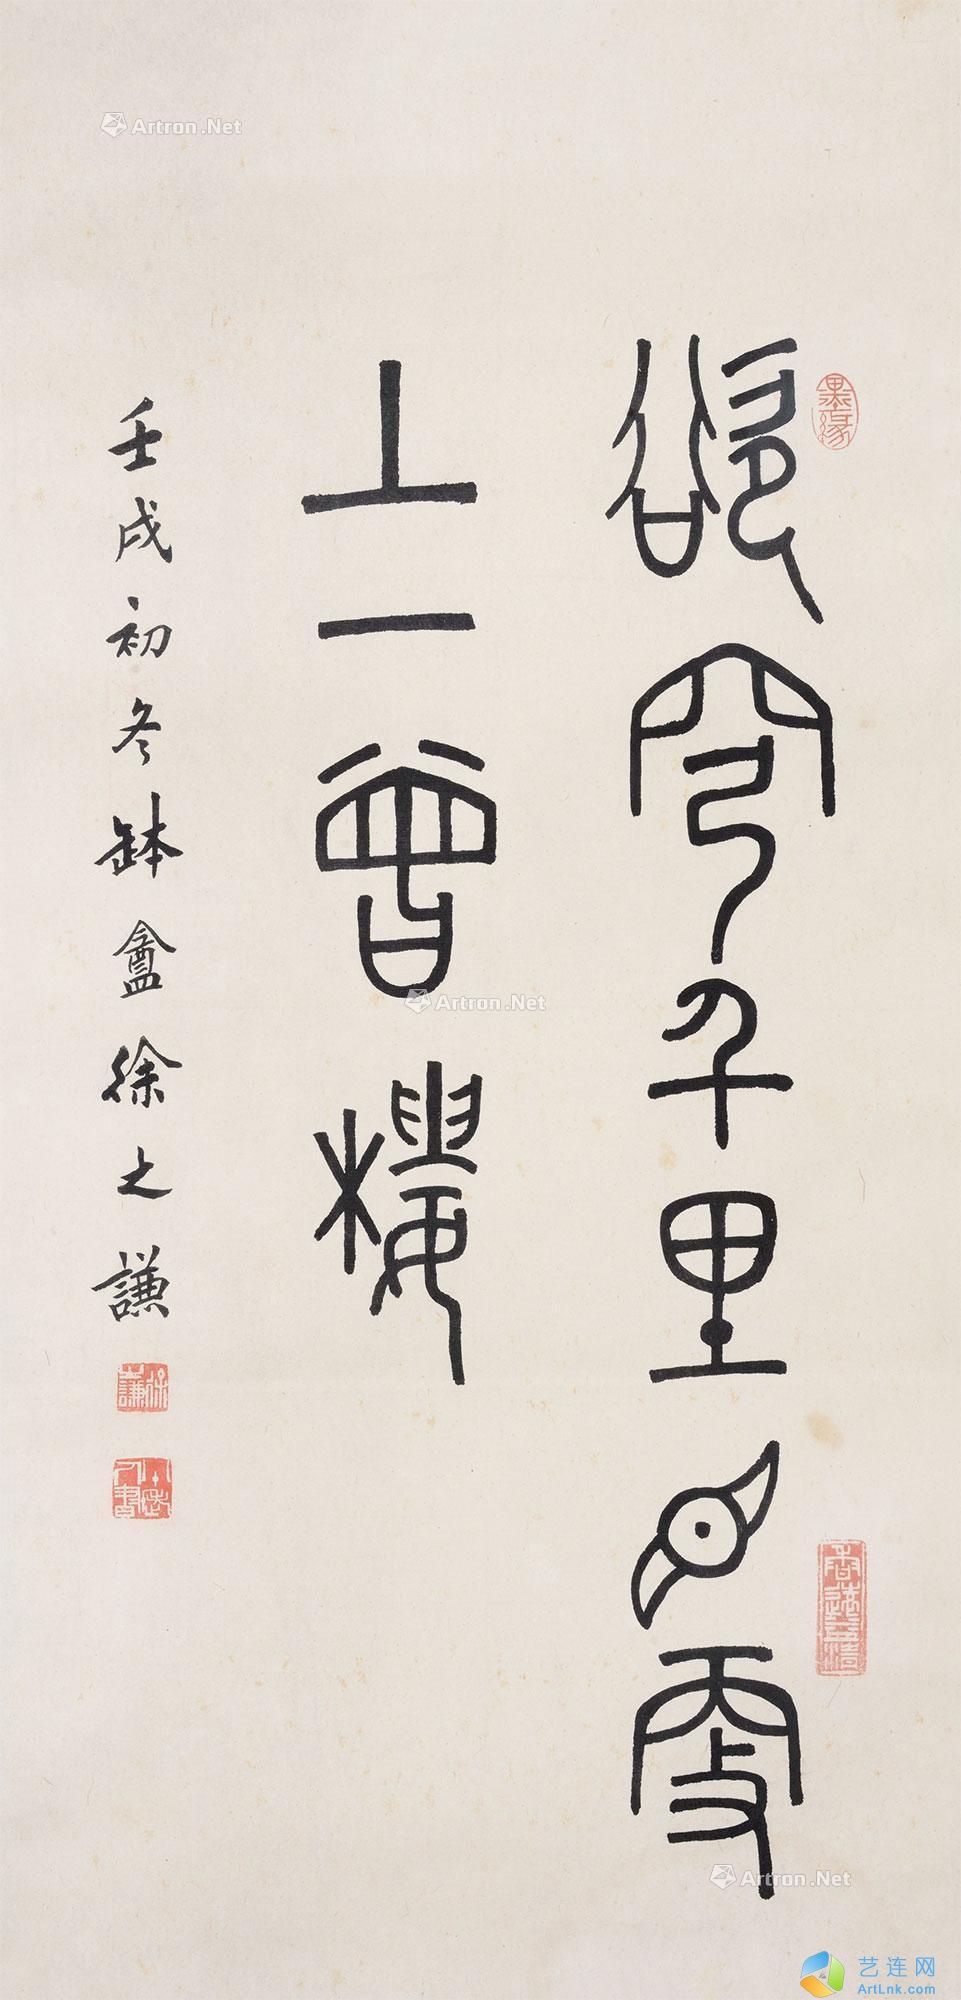 墨緣
欲穹千里目更
上一曾樓
壬戌初冬缽盦徐之謙
Artron.Net
Artron.Net
Artron.Net
艺连网
ArtLnk.com